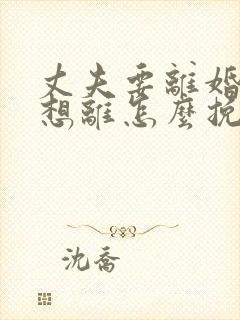 丈夫要離婚
想離怎麼挽
沈喬